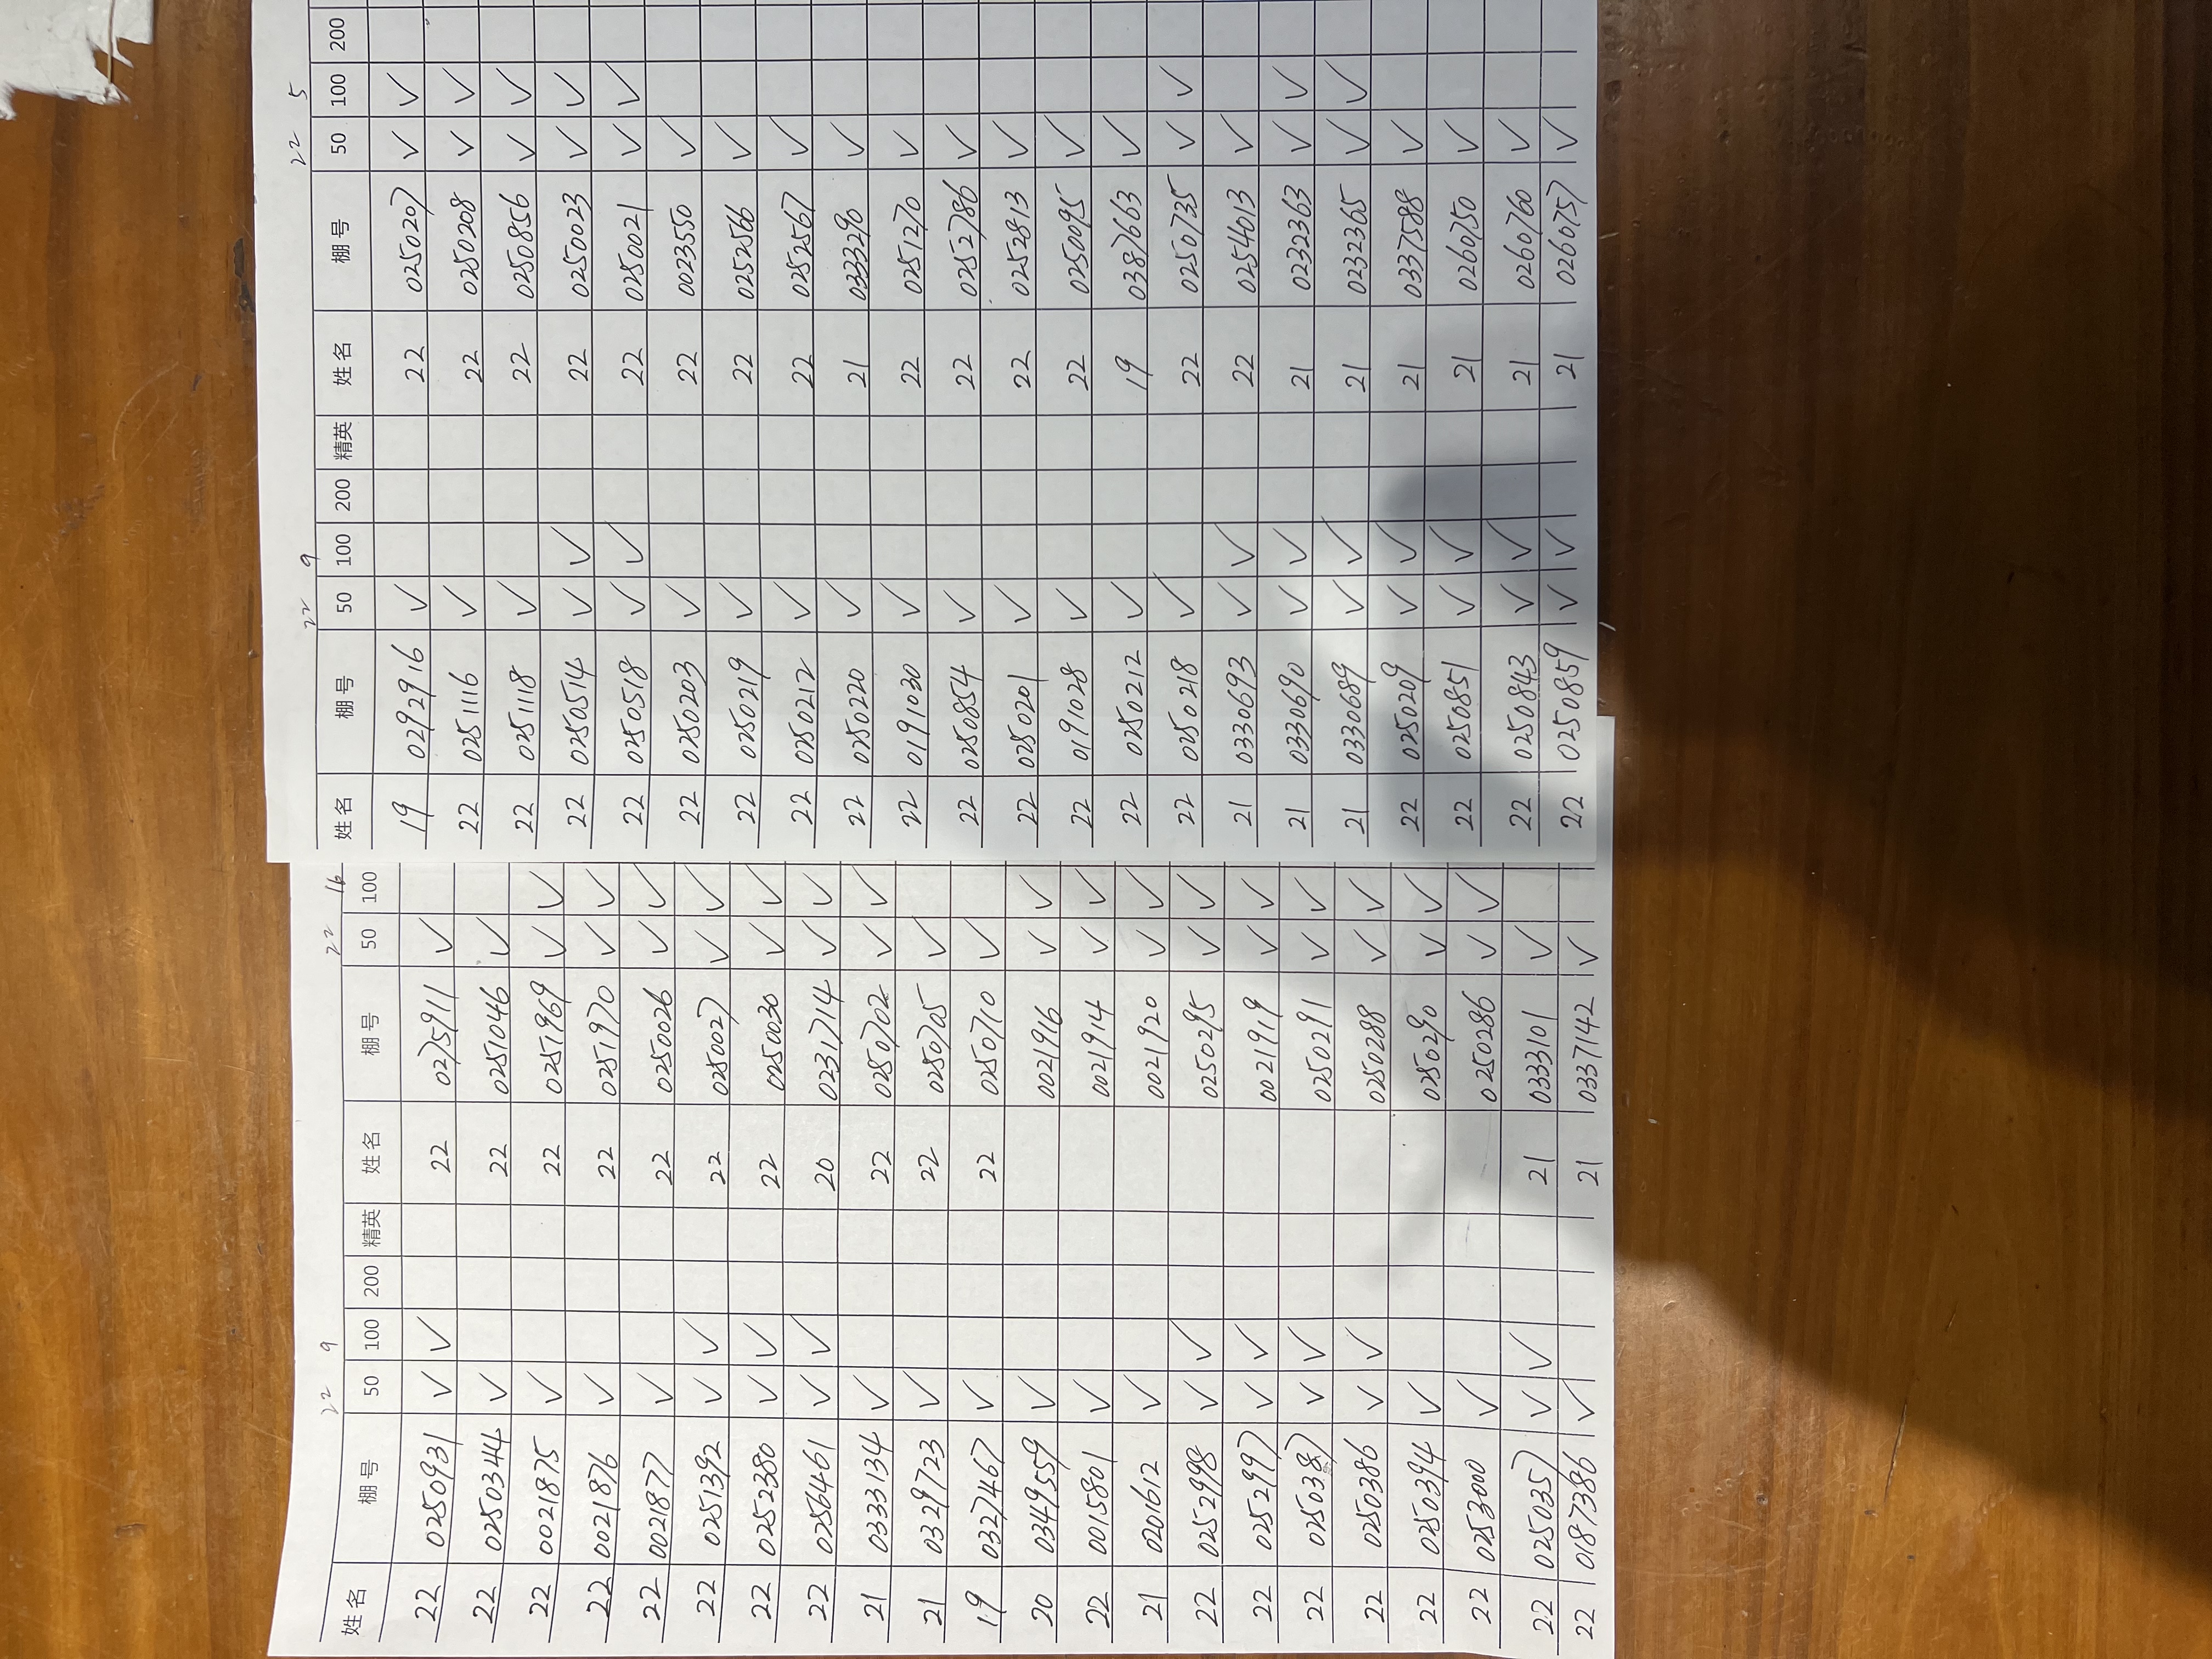 22 9 22 16
姓名 棚号 50 100 200 精英 姓名 棚号 50 100
22 0250931 ✓ ✓ 22 0275911 ✓
22 0250344 ✓ 22 0251046 ✓
22 0021875 ✓ 22 0251969 ✓ ✓
22 0021876 ✓ 22 0251970 ✓ ✓
22 0021877 ✓ 22 0250026 ✓ ✓
22 0251392 ✓ ✓ 22 0250027 ✓ ✓
22 0252380 ✓ ✓ 22 0250030 ✓ ✓
22 0256461 ✓ ✓ 20 0231714 ✓ ✓
21 0333134 ✓ 22 0250702 ✓ ✓
21 0329723 ✓ 22 0250705 ✓
19 0327467 ✓ 22 0250710 ✓
20 0349559 ✓ 0021916 ✓ ✓
22 0015801 ✓ 0021914 ✓ ✓
21 0201612 ✓ 0021920 ✓ ✓
22 0252998 ✓ ✓ 0250295 ✓ ✓
22 0252997 ✓ ✓ 0021919 ✓ ✓
22 0250387 ✓ ✓ 0250291 ✓ ✓
22 0250386 ✓ ✓ 0250288 ✓ ✓
22 0250394 ✓ 0250290 ✓ ✓
22 0253000 ✓ 0250286 ✓ ✓
22 0250357 ✓ ✓ 21 0333101 ✓
22 0187386 ✓ 21 0337142 ✓
22 9 22 5
姓名 棚号 50 100 200 精英 姓名 棚号 50 100 200
19 0292916 ✓ 22 0250207 ✓ ✓
22 0251116 ✓ 22 0250208 ✓ ✓
22 0251118 ✓ 22 0250856 ✓ ✓
22 0250514 ✓ ✓ 22 0250023 ✓ ✓
22 0250518 ✓ ✓ 22 0250021 ✓ ✓
22 0250203 ✓ 22 0023550 ✓
22 0250219 ✓ 22 0252566 ✓
22 0250212 ✓ 22 0252567 ✓
22 0250220 ✓ 21 0333290 ✓
22 0191030 ✓ 22 0251270 ✓
22 0250854 ✓ 22 0252786 ✓
22 0250201 ✓ 22 0252813 ✓
22 0191028 ✓ 22 0250095 ✓
22 0250212 ✓ 19 0387663 ✓
22 0250218 ✓ 22 0250735 ✓ ✓
21 0330693 ✓ ✓ 22 0254013 ✓
21 0330690 ✓ ✓ 21 0232363 ✓ ✓
21 0330689 ✓ ✓ 21 0232365 ✓ ✓
22 0250209 ✓ ✓ 21 0337588 ✓
22 0250851 ✓ ✓ 21 0260750 ✓
22 0250843 ✓ ✓ 21 0260760 ✓
22 0250859 ✓ ✓ 21 0260757 ✓